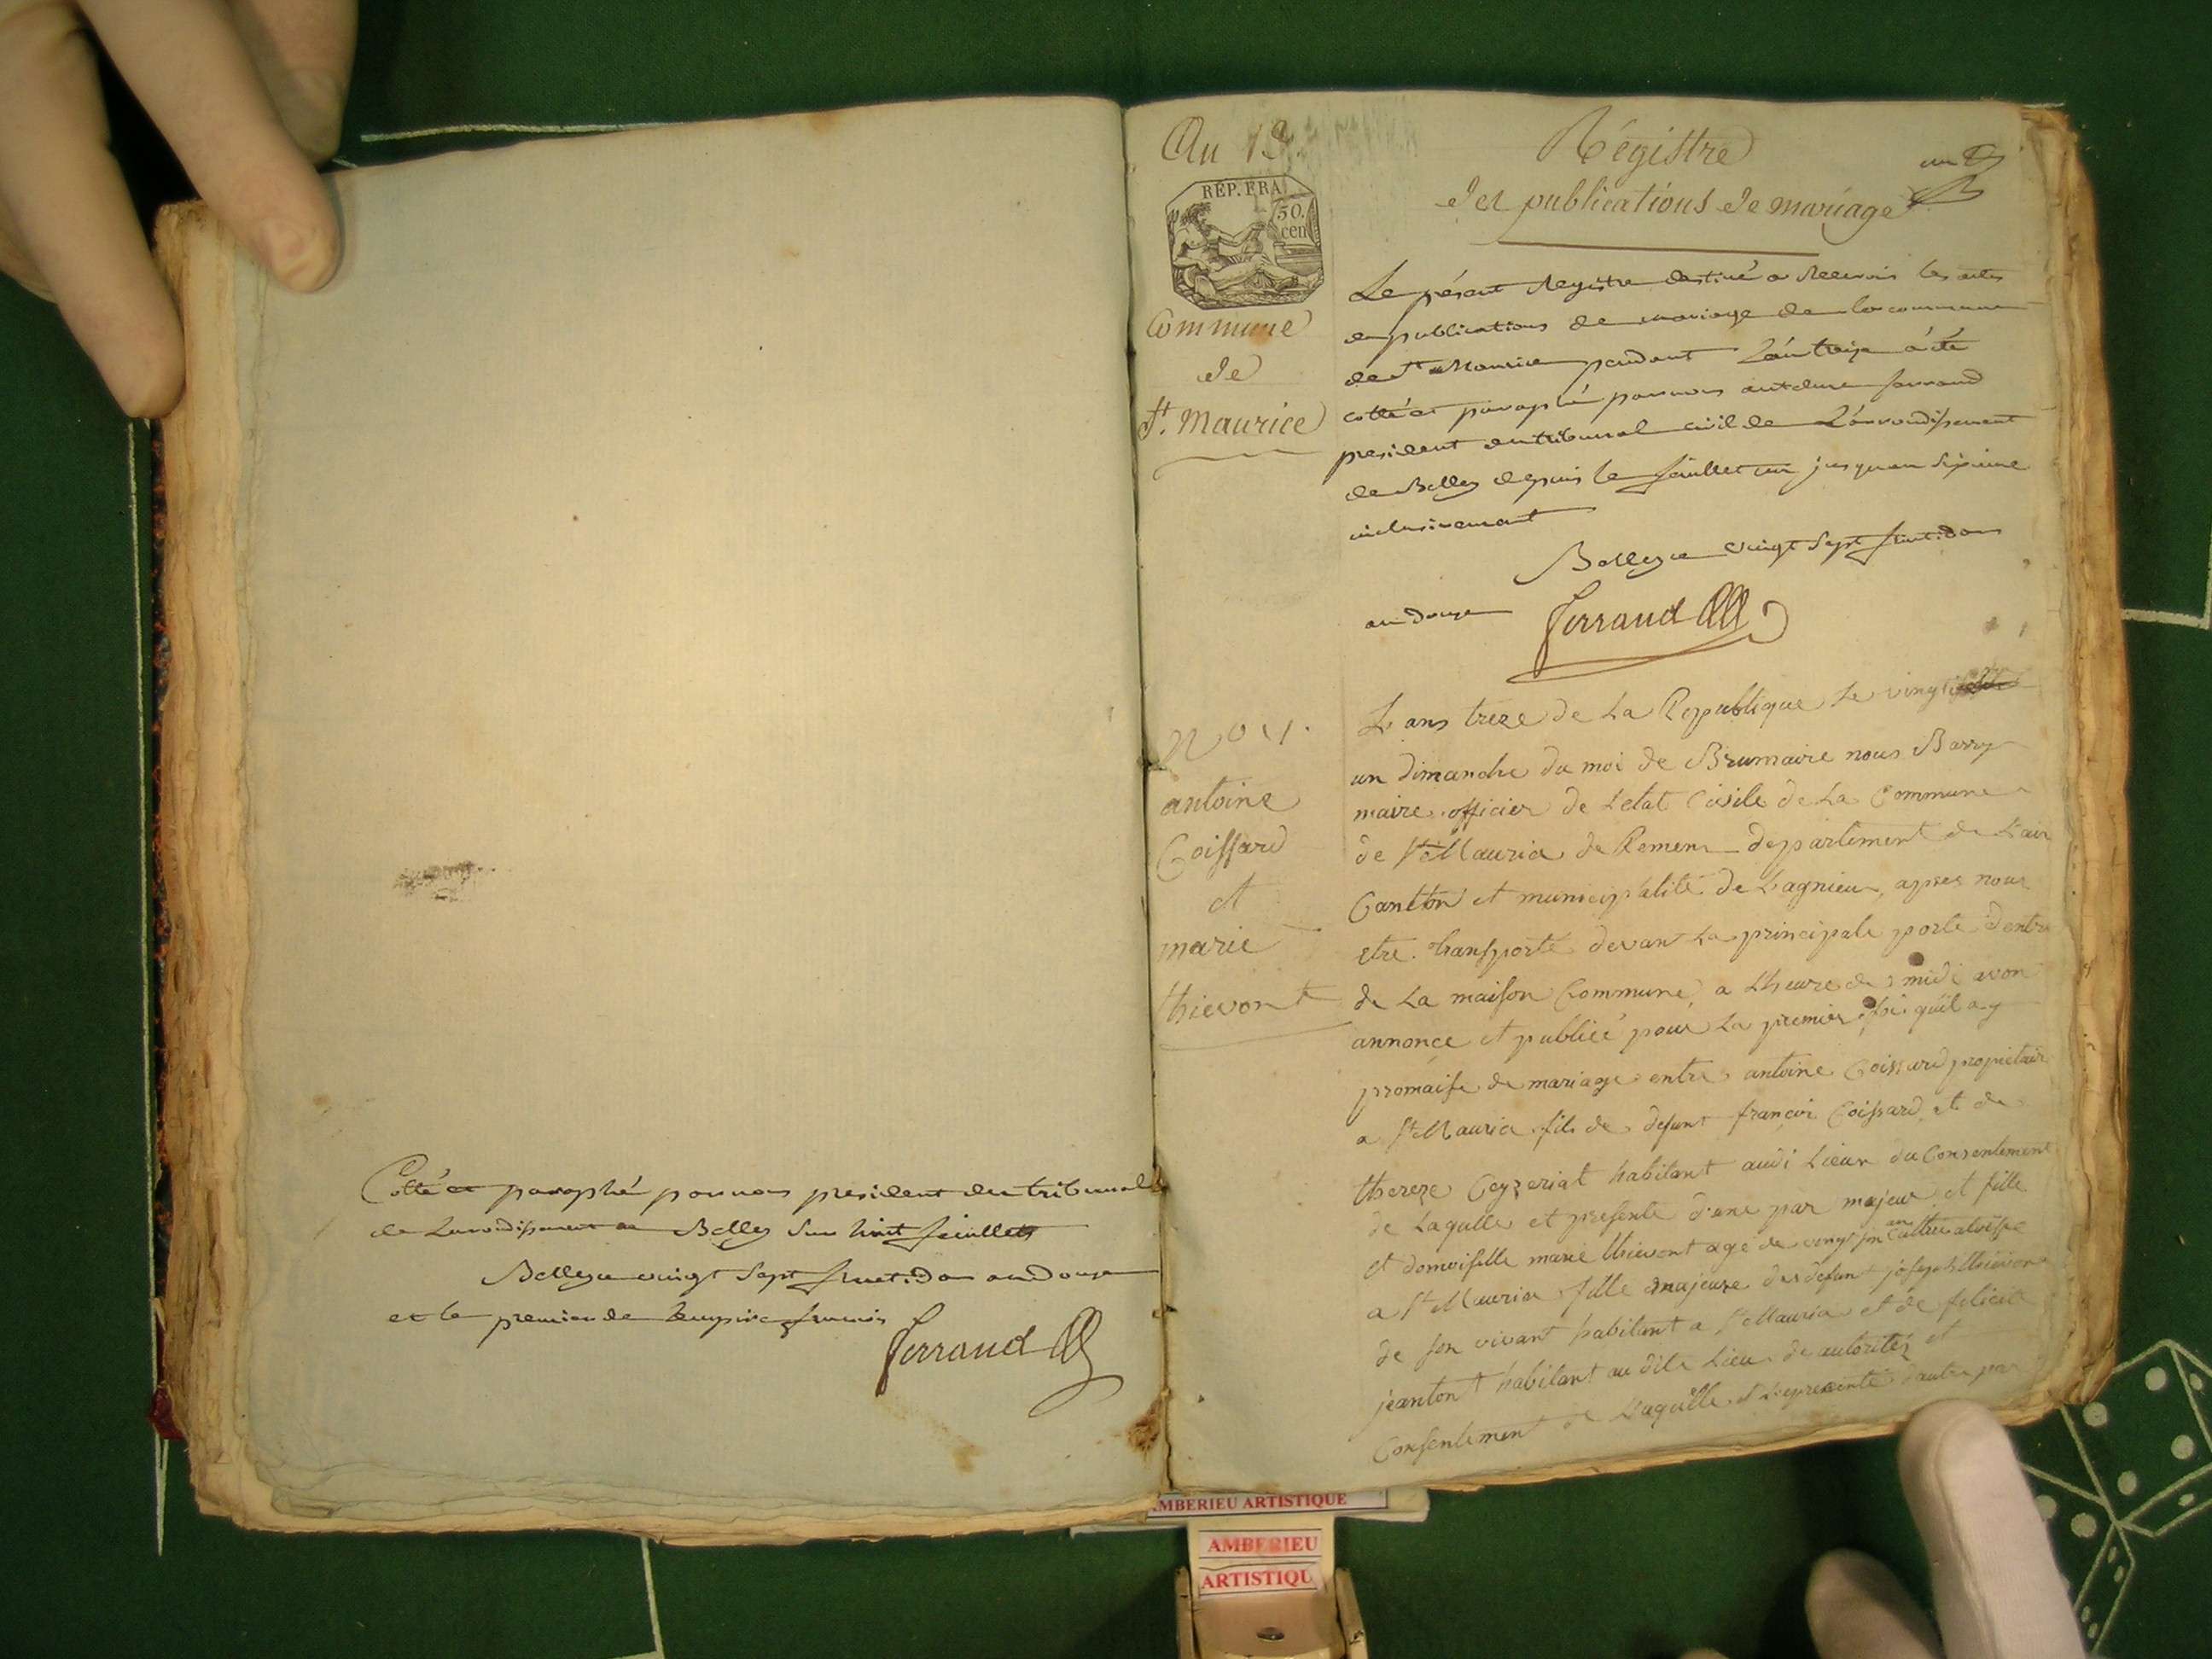 Cotté et paraphé par nous president du tribunal
de Larrondissement de Belley Sur huit feuillets
Belley ce vingt Sept fructidor an Douze
et le premier de Lempire francais
Ferraud
An 13.
REP. FRA
50.
cen
Commune
de
St. Maurice
Régistre
des publications de mariage
un
Le présent Registre destiné a Recevoir les actes
de publications de mariage de la commune
de St Maurice pendant L'an treize a été
cotté et paraphé par nous antelme ferraud
president du tribunal civil de L'arrondissement
de Belley depuis le feuillet un jusquau Sixieme
inclusivement
Belley ce vingt Sept fructidor
an Douze
Ferraud
No 1.
antoine
Coissard
et
marie
thievont
L ans treze de La Republique Le vingt
un dimanche du moi de Brumaire nous Barry
maire officier de Letat Civile de La Commune
de St Maurice de Remens departement de Lain
Canton et municipalité de Lagnieu, apres nous
etre transporté devant La principale porte dentre
de La maison Commune, a Lheure de midi avon
annonçe et publieé pour La premier foi quil a y
promaise de mariage entre antoine Coissard propietair
a St Maurice fils de defunt françoi Coissard et de
thereze Ceyzeriat habitant audi Lieux du Consentement
de Laqulle et presente d'une par majeur et fille
et demoiselle marie thievont age de vingt
a St Maurice fille majeure des defunt joseph thievon
de son vivant habitant a St Maurice et de felicite
jeanton habitant au dite Lieu de autorites et
Consentement de Laquille et Lepresente dautre par
AMBERIEU ARTISTIQUE
AMBERIEU
ARTISTIQU